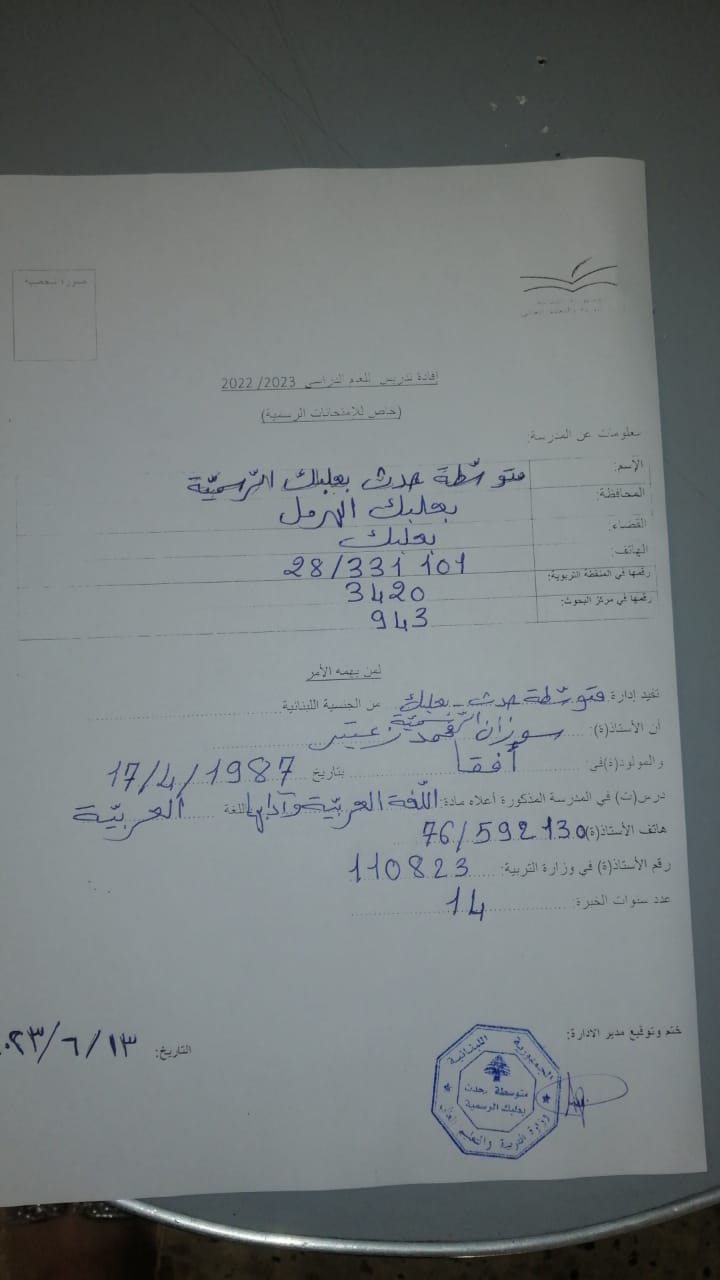 صورة شمسية
إفادة تدريس للعام الدراسي 2022/2023
(خاص للإمتحانات الرسمية)
معلومات عن المدرسة:
الإسم: متوسّطة حدث بعلبك الرّسميّة
المحافظة: بعلبك الهرمل
القضاء: بعلبك
الهاتف: 28/331 101
رقمها في المنطقة التربوية: 3420
رقمها في مركز البحوث: 943
لمن يهمه الأمر
تفيد إدارة متوسّطة حدث - بعلبك من الجنسية اللبنانية
الرّسميّة
أن الأستاذ(ة): سوزان محمد زعيتر
والمولود(ة) في: أفقا بتاريخ 17/4/1987
درس(ت) في المدرسة المذكورة أعلاه مادة: اللّغة العربيّة وآدابها باللغة العربيّة
هاتف الأستاذ(ة) 76/592130
رقم الأستاذ(ة) في وزارة التربية: 110823
عدد سنوات الخبرة: 14
ختم وتوقيع مدير الادارة:
التاريخ: ٠٢٣/٦/١٣
الجمهورية اللبنانية
متوسطة حدث
بعلبك الرسمية
وزارة التربية والتعليم العالي